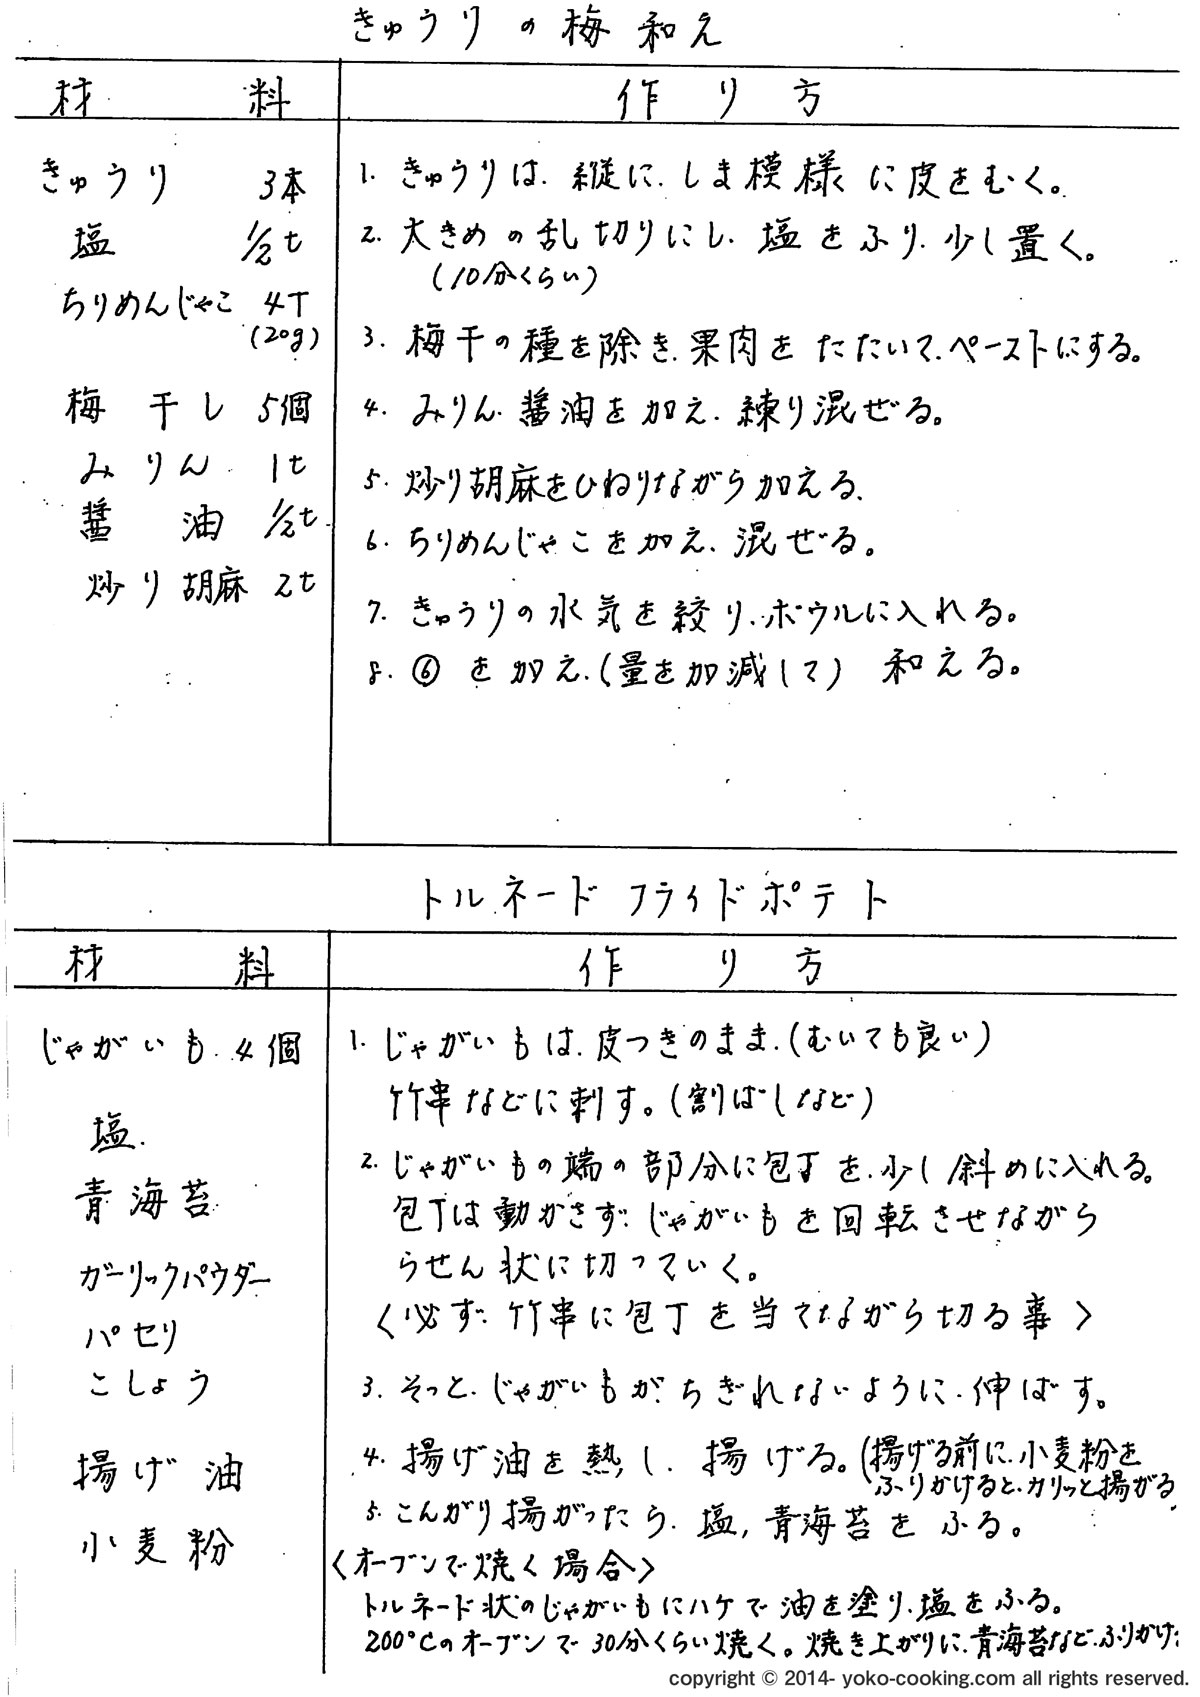 きゅうりの梅和え
材料
作り方
きゅうり 3本
塩 1/2t
ちりめんじゃこ 4T
(20g)
梅干し 5個
みりん 1t
醤油 1/2t
炒り胡麻 2t
1. きゅうりは、縦に、しま模様に皮をむく。
2. 大きめの乱切りにし、塩をふり、少し置く。
(10分くらい)
3. 梅干の種を除き、果肉をたたいて、ペーストにする。
4. みりん、醤油を加え、練り混ぜる。
5. 炒り胡麻をひねりながら加える、
6. ちりめんじゃこを加え、混ぜる。
7. きゅうりの水気を絞り、ボウルに入れる。
8. ⑥を加え、(量を加減して) 和える。
トルネードフライドポテト
材料
作り方
じゃがいも 4個
塩
青海苔
ガーリックパウダー
パセリ
こしょう
揚げ油
小麦粉
1. じゃがいもは、皮つきのまま、(むいても良い)
竹串などに刺す。(割ばしなど)
2. じゃがいもの端の部分に包丁を、少し斜めに入れる。
包丁は動かさず、じゃがいもを回転させながら
らせん状に切っていく。
〈必ず、竹串に包丁を当てながら切る事〉
3. そっと、じゃがいもが、ちぎれないように、伸ばす。
4. 揚げ油を熱し、揚げる。(揚げる前に、小麦粉を
ふりかけると、カリッと揚がる
5. こんがり揚がったら、塩, 青海苔をふる。
〈オーブンで焼く場合〉
トルネード状のじゃがいもにハケで油を塗り、塩をふる。
200°Cのオーブンで30分くらい焼く。焼き上がりに、青海苔など、ふりかけ
copyright © 2014- yoko-cooking.com all rights reserved.